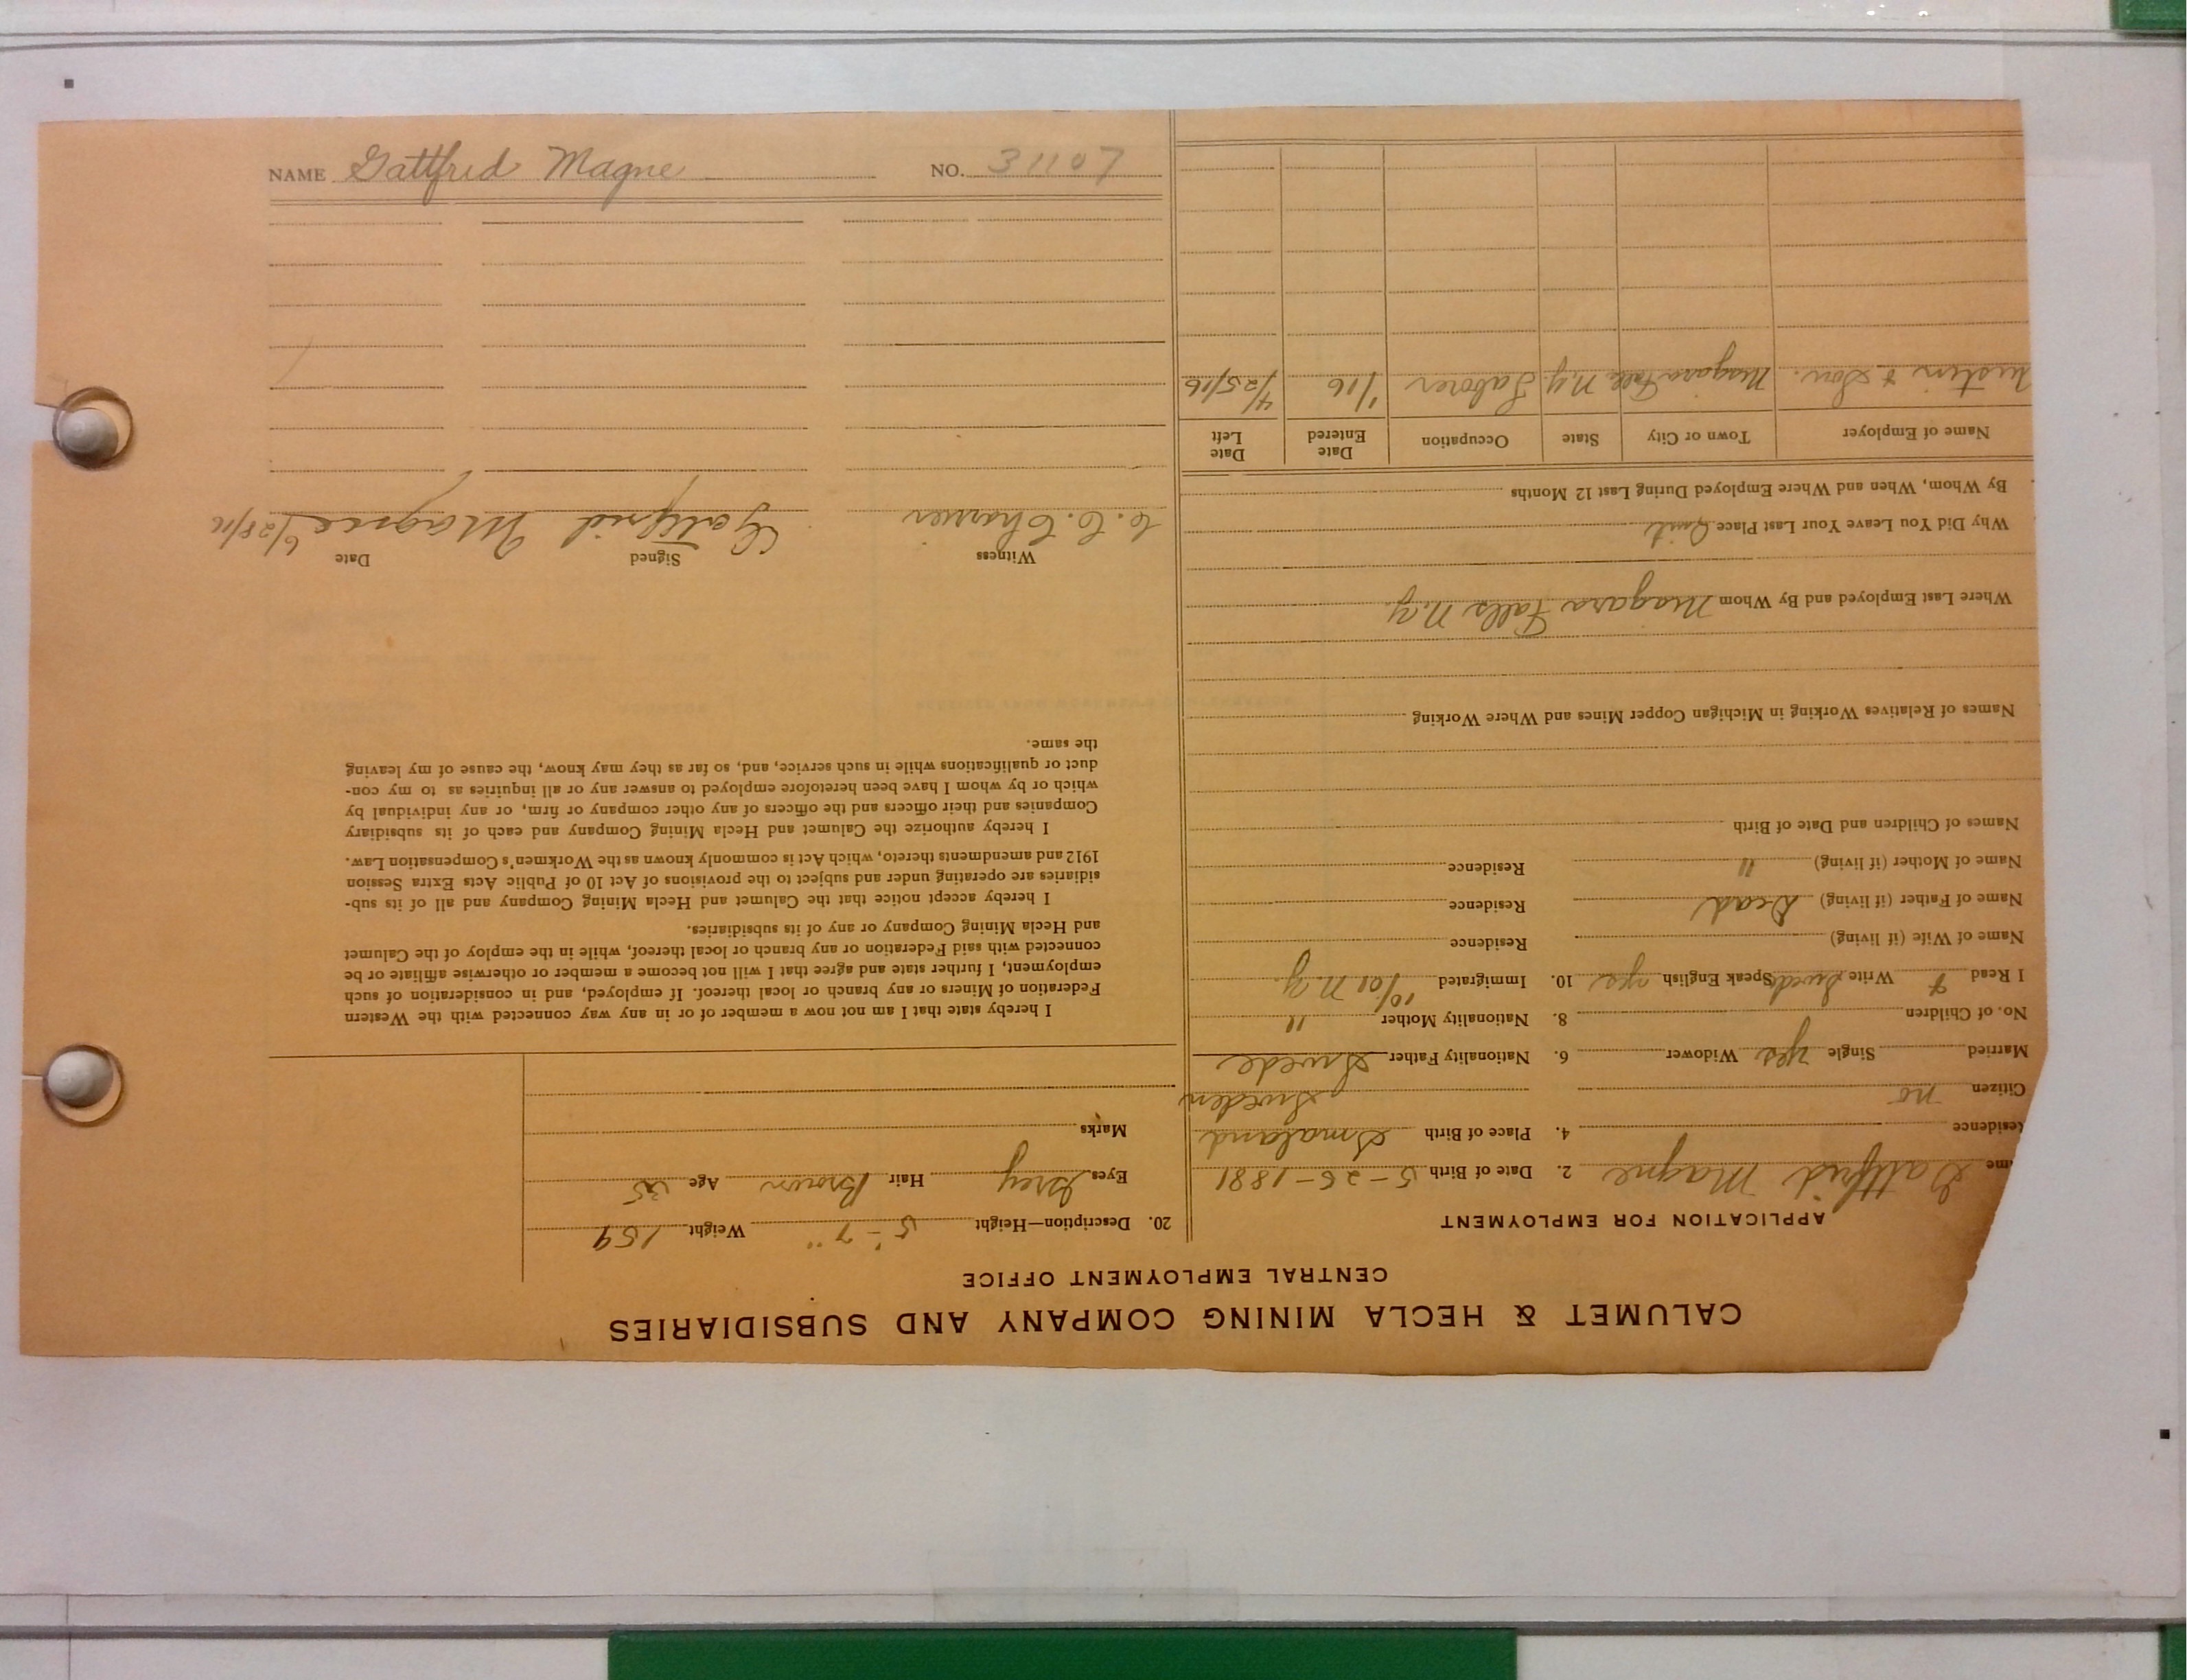 NAME Gattfrid Magne NO. 31107
CALUMET & HECLA MINING COMPANY AND SUBSIDIARIES
CENTRAL EMPLOYMENT OFFICE
APPLICATION FOR EMPLOYMENT
me Gattfrid Magne 2. Date of Birth 5-26-1881
esidence 4. Place of Birth Smaland
Citizen no Sweden
Married Single yes Widower 6. Nationality Father Swede
No. of Children 8. Nationality Mother "
I Read & Write Swed Speak English yes 10. Immigrated 10/01 N.Y.
Name of Wife (if living) Residence
Name of Father (if living) Dead Residence
Name of Mother (if living) " Residence
Names of Children and Date of Birth
Names of Relatives Working in Michigan Copper Mines and Where Working
Where Last Employed and By Whom Niagara Falls N.Y.
Why Did You Leave Your Last Place Quit
By Whom, When and Where Employed During Last 12 Months
Name of Employer Town or City State Occupation Date Entered Date Left
& Son. Niagara Falls N.Y. Laborer 1/16 4/25/16
20. Description—Height 5'-7" Weight 159
Eyes Grey Hair Brown Age 35
Marks
I hereby state that I am not now a member of or in any way connected with the Western
Federation of Miners or any branch or local thereof. If employed, and in consideration of such
employment, I further state and agree that I will not become a member or otherwise affiliate or be
connected with said Federation or any branch or local thereof, while in the employ of the Calumet
and Hecla Mining Company or any of its subsidiaries.
I hereby accept notice that the Calumet and Hecla Mining Company and all of its sub-
sidiaries are operating under and subject to the provisions of Act 10 of Public Acts Extra Session
1912 and amendments thereto, which Act is commonly known as the Workmen's Compensation Law.
I hereby authorize the Calumet and Hecla Mining Company and each of its subsidiary
Companies and their officers and the officers of any other company or firm, or any individual by
which or by whom I have been heretofore employed to answer any or all inquiries as to my con-
duct or qualifications while in such service, and, so far as they may know, the cause of my leaving
the same.
Witness Signed Date
C. C. Gottfrid Magne 6/28/16